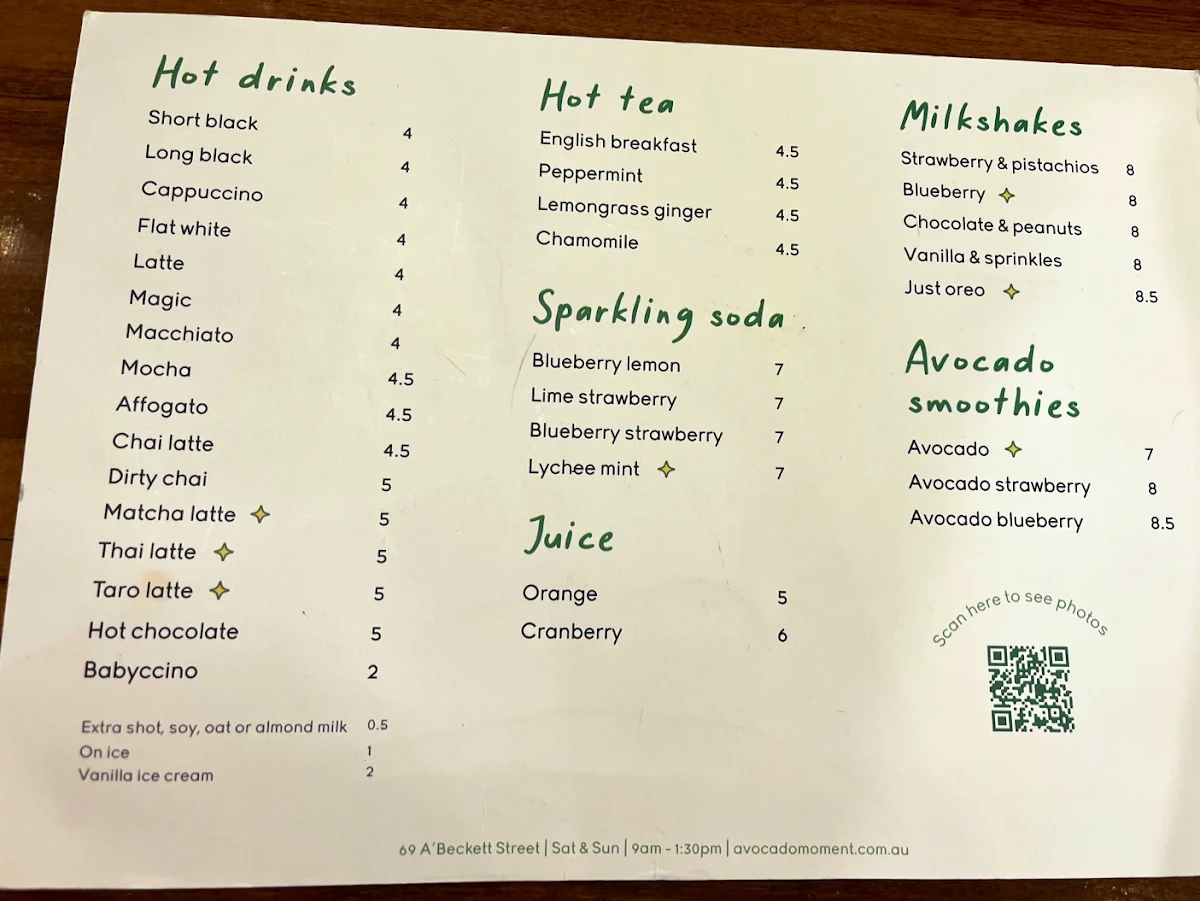 Hot drinks
Short black 4
Long black 4
Cappuccino 4
Flat white 4
Latte 4
Magic 4
Macchiato 4
Mocha 4.5
Affogato 4.5
Chai latte 4.5
Dirty chai 5
Matcha latte 5
Thai latte 5
Taro latte 5
Hot chocolate 5
Babyccino 2
Extra shot, soy, oat or almond milk 0.5
On ice 1
Vanilla ice cream 2
Hot tea
English breakfast 4.5
Peppermint 4.5
Lemongrass ginger 4.5
Chamomile 4.5
Sparkling soda
Blueberry lemon 7
Lime strawberry 7
Blueberry strawberry 7
Lychee mint 7
Juice
Orange 5
Cranberry 6
Milkshakes
Strawberry & pistachios 8
Blueberry 8
Chocolate & peanuts 8
Vanilla & sprinkles 8
Just oreo 8.5
Avocado
smoothies
Avocado 7
Avocado strawberry 8
Avocado blueberry 8.5
Scan here to see photos
69 A'Beckett Street | Sat & Sun | 9am - 1:30pm | avocadomoment.com.au